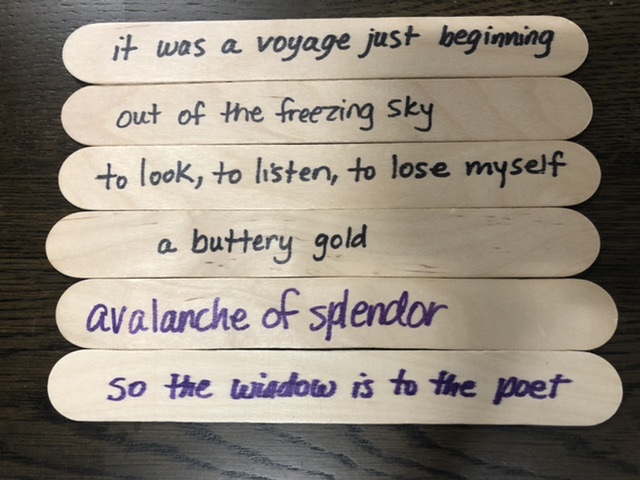 it was a voyage just beginning
out of the freezing sky
to look, to listen, to lose myself
a buttery gold
avalanche of splendor
so the window is to the poet